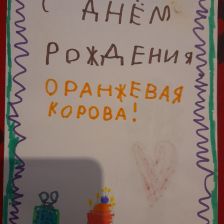 С ДНЁМ
РОЖДЕНИЯ,
ОРАНЖЕВАЯ
КОРОВА!